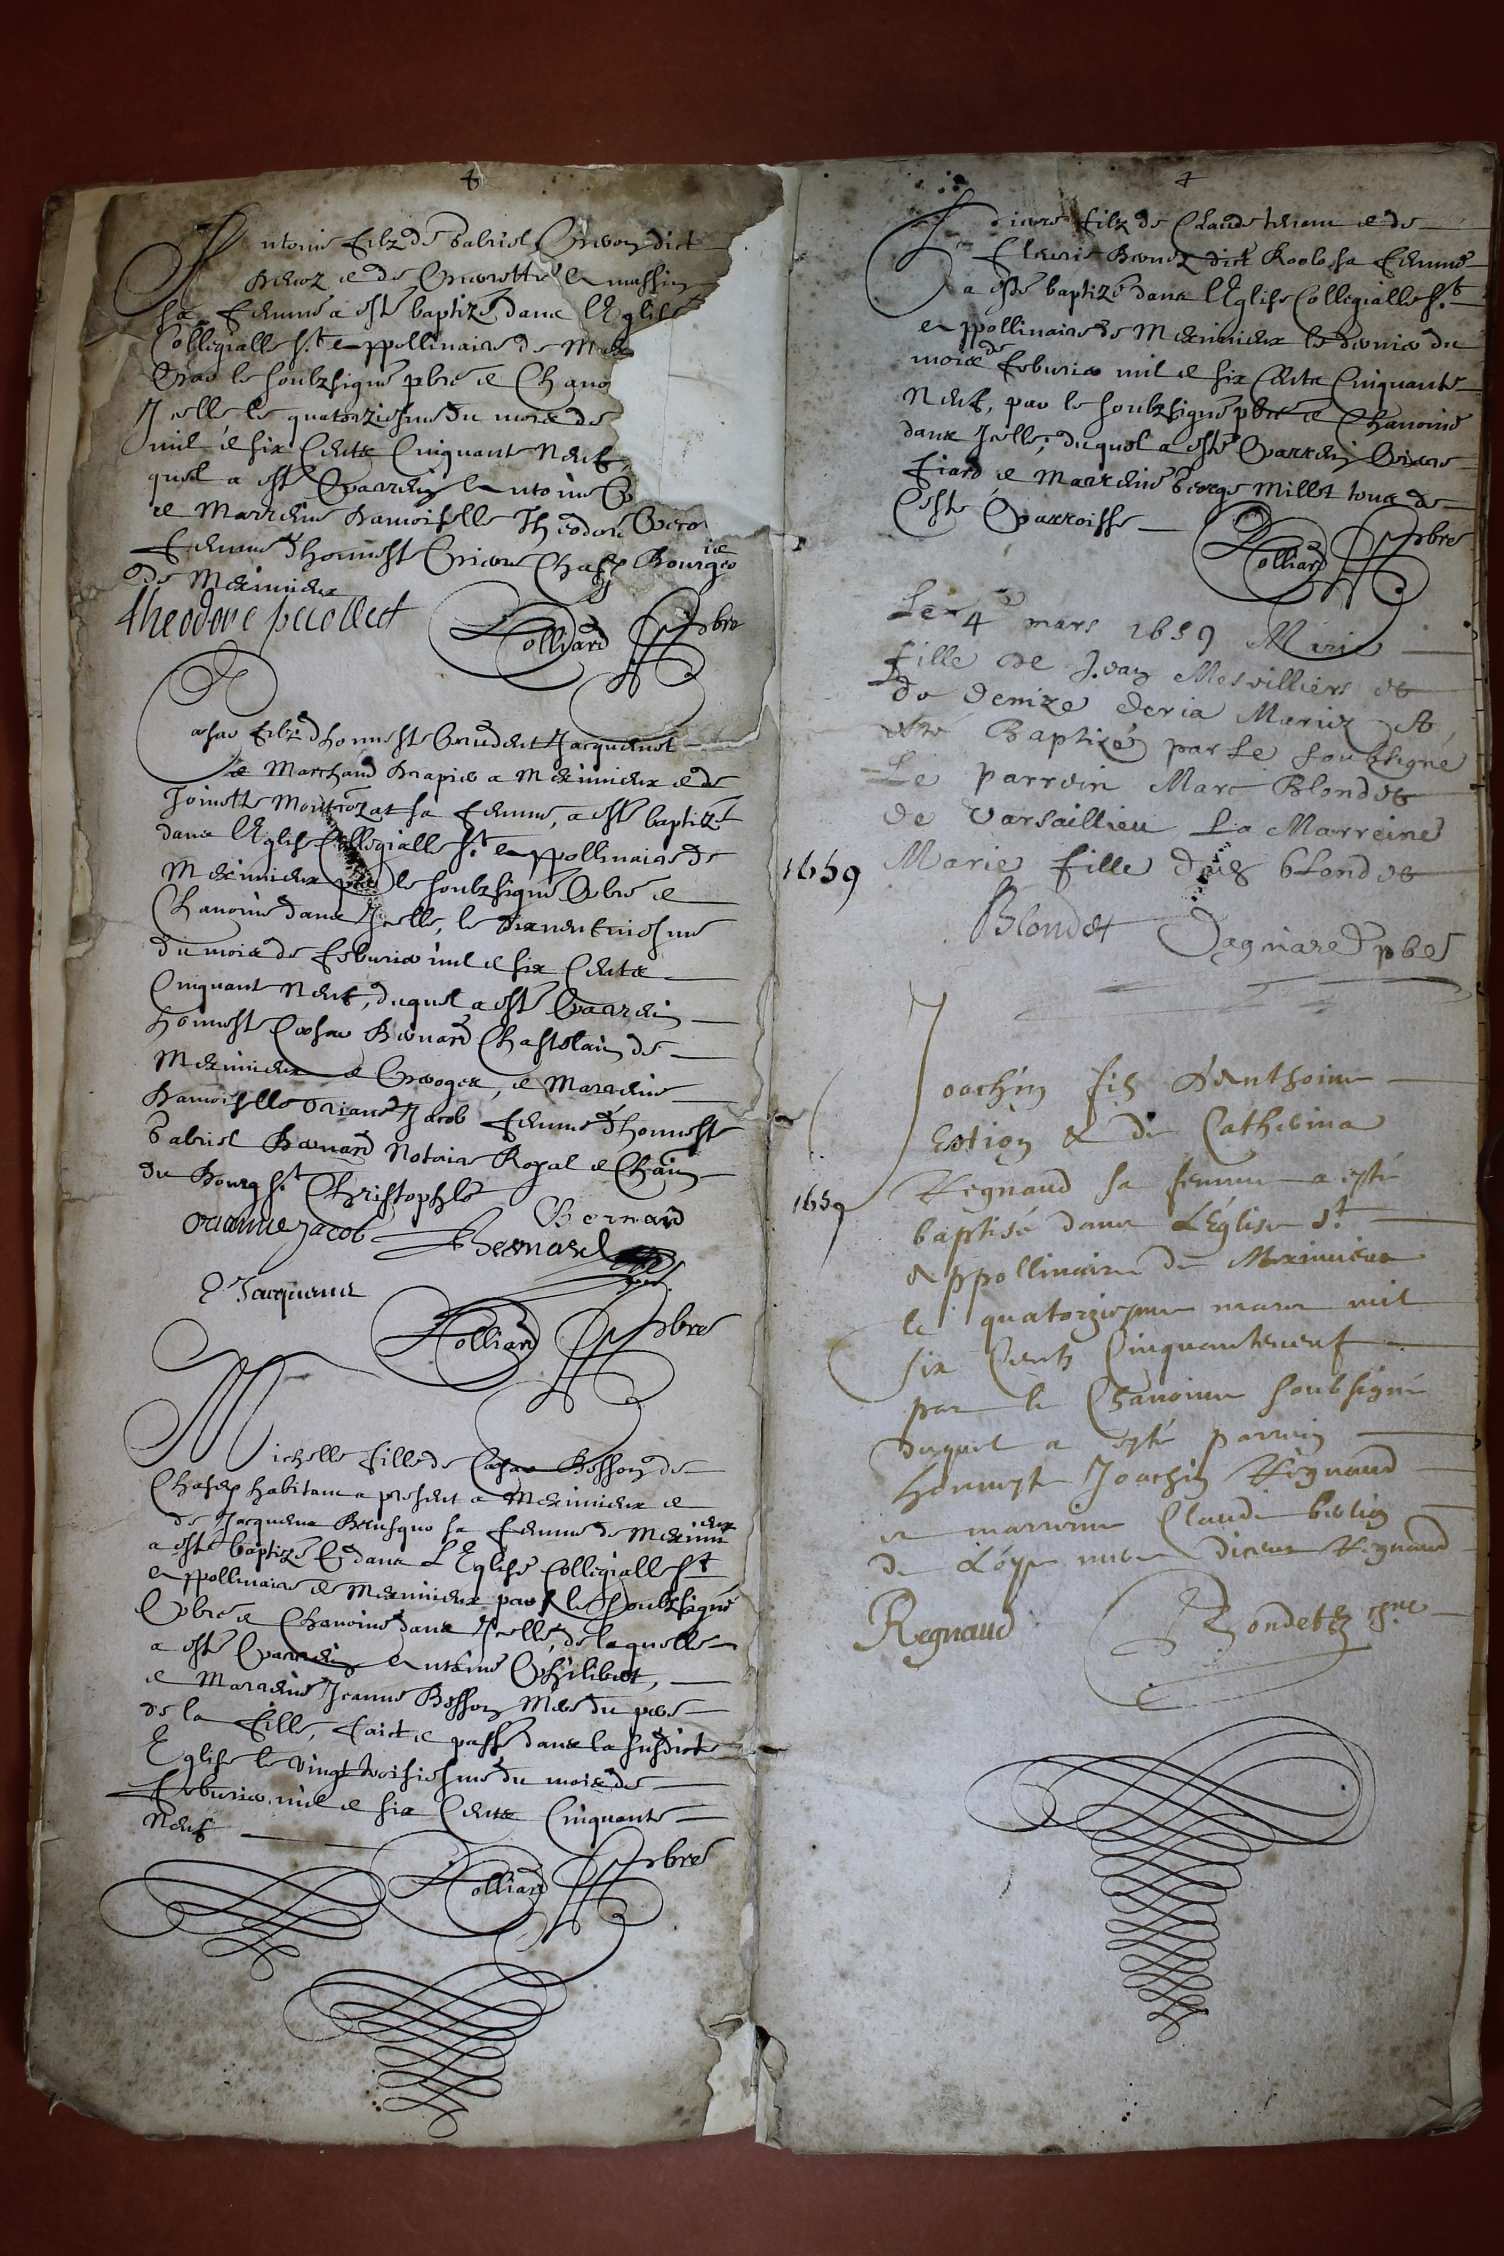 Antoine filz de Gabriel dict
et de Pierrette
sa femme a esté baptizé dans l'Eglise
Collegialle St Appollinaire de Mex
Par le soubzsigné pbre et Chano
Icelle le quatorziesme du mois de
mil et six Cents Cinquante Neuf,
quel a esté Parrein Antoine P
et Marreine Damoiselle Theodore Pero
femme d'honneste Pierre Chasse Bourgeois
de Meximieux
theodore perollet
Rolliard pbre
Cesar filz d'honneste Prudent Jacquemet
Marchand Drapier a Meximieux et de
Toinette Montrozat sa femme, a esté baptizé
dans l'Eglise Collegialle St Appollinaire de
Meximieux par le soubzsigné Pbre et
Chanoine dans Icelle, le dixneufviesme
du mois de febvrier mil et six Cents
Cinquante Neuf, duquel a esté Parrein
honneste Cesar Bernard Chastelain de
Meximieux et Peroges, et Marreine
Damoiselle Oriane Jacob femme d'honneste
Gabriel Bernard Notaire Royal et Chain
du Bourg St Christophle
orianne jacob Bernard
Bernard
P Jacquemet
Rolliard pbre
Michelle fille de Cesar Besson de
Chasey habitant a present a Meximieux et
de Jacquema sa femme de Meximieux
a esté baptizé dans L'Eglise Collegialle St
Appollinaire de Meximieux par le soubzsigné
Pbre et Chanoine dans Icelle, de laquelle
a esté Parrein Antoine Philibert,
et Marreine Jeanne Besson Mere du pere
de la fille, faict et passé dans la susdicte
Eglise le vingt troisiesme du mois de
febvrier mil et six Cents Cinquante
Neuf
Rolliard pbre
Pierre filz de Claude et de
Fleurie dict sa femme
a esté baptizé dans l'Eglise Collegialle St
Appollinaire de Meximieux le dernier du
mois de febvrier mil et six Cents Cinquante
Neuf, par le soubzsigné pbre et Chanoine
dans Icelle, duquel a esté Parrein Pierre
Fiard et Marreine George Millet tous de
Ceste Parroisse
Rolliard pbre
Le 4e mars 1659 Marie
fille de Jean Mesvilliers et
de denize deria Mariez A
este Baptizée par Le soubsigné
Le parrein Marc Blondet
de Varsaillieu La Marreine
1659 Marie fille dud blondet
Blondet Dagniare pbre
Joachin fils d'Anthoine
Estion & de Catherina
1659 Regnaud sa femme a esté
baptisé dans L'Eglise St
Appollinaire de Meximieux
le quatorziesme mars mil
six Cents Cinquanteneuf
par le Chanoine soubsigné
duquel a esté parrein
honneste Joachin Regnaud
et marreine Claude
de Loye Regnaud
Regnaud Bondet